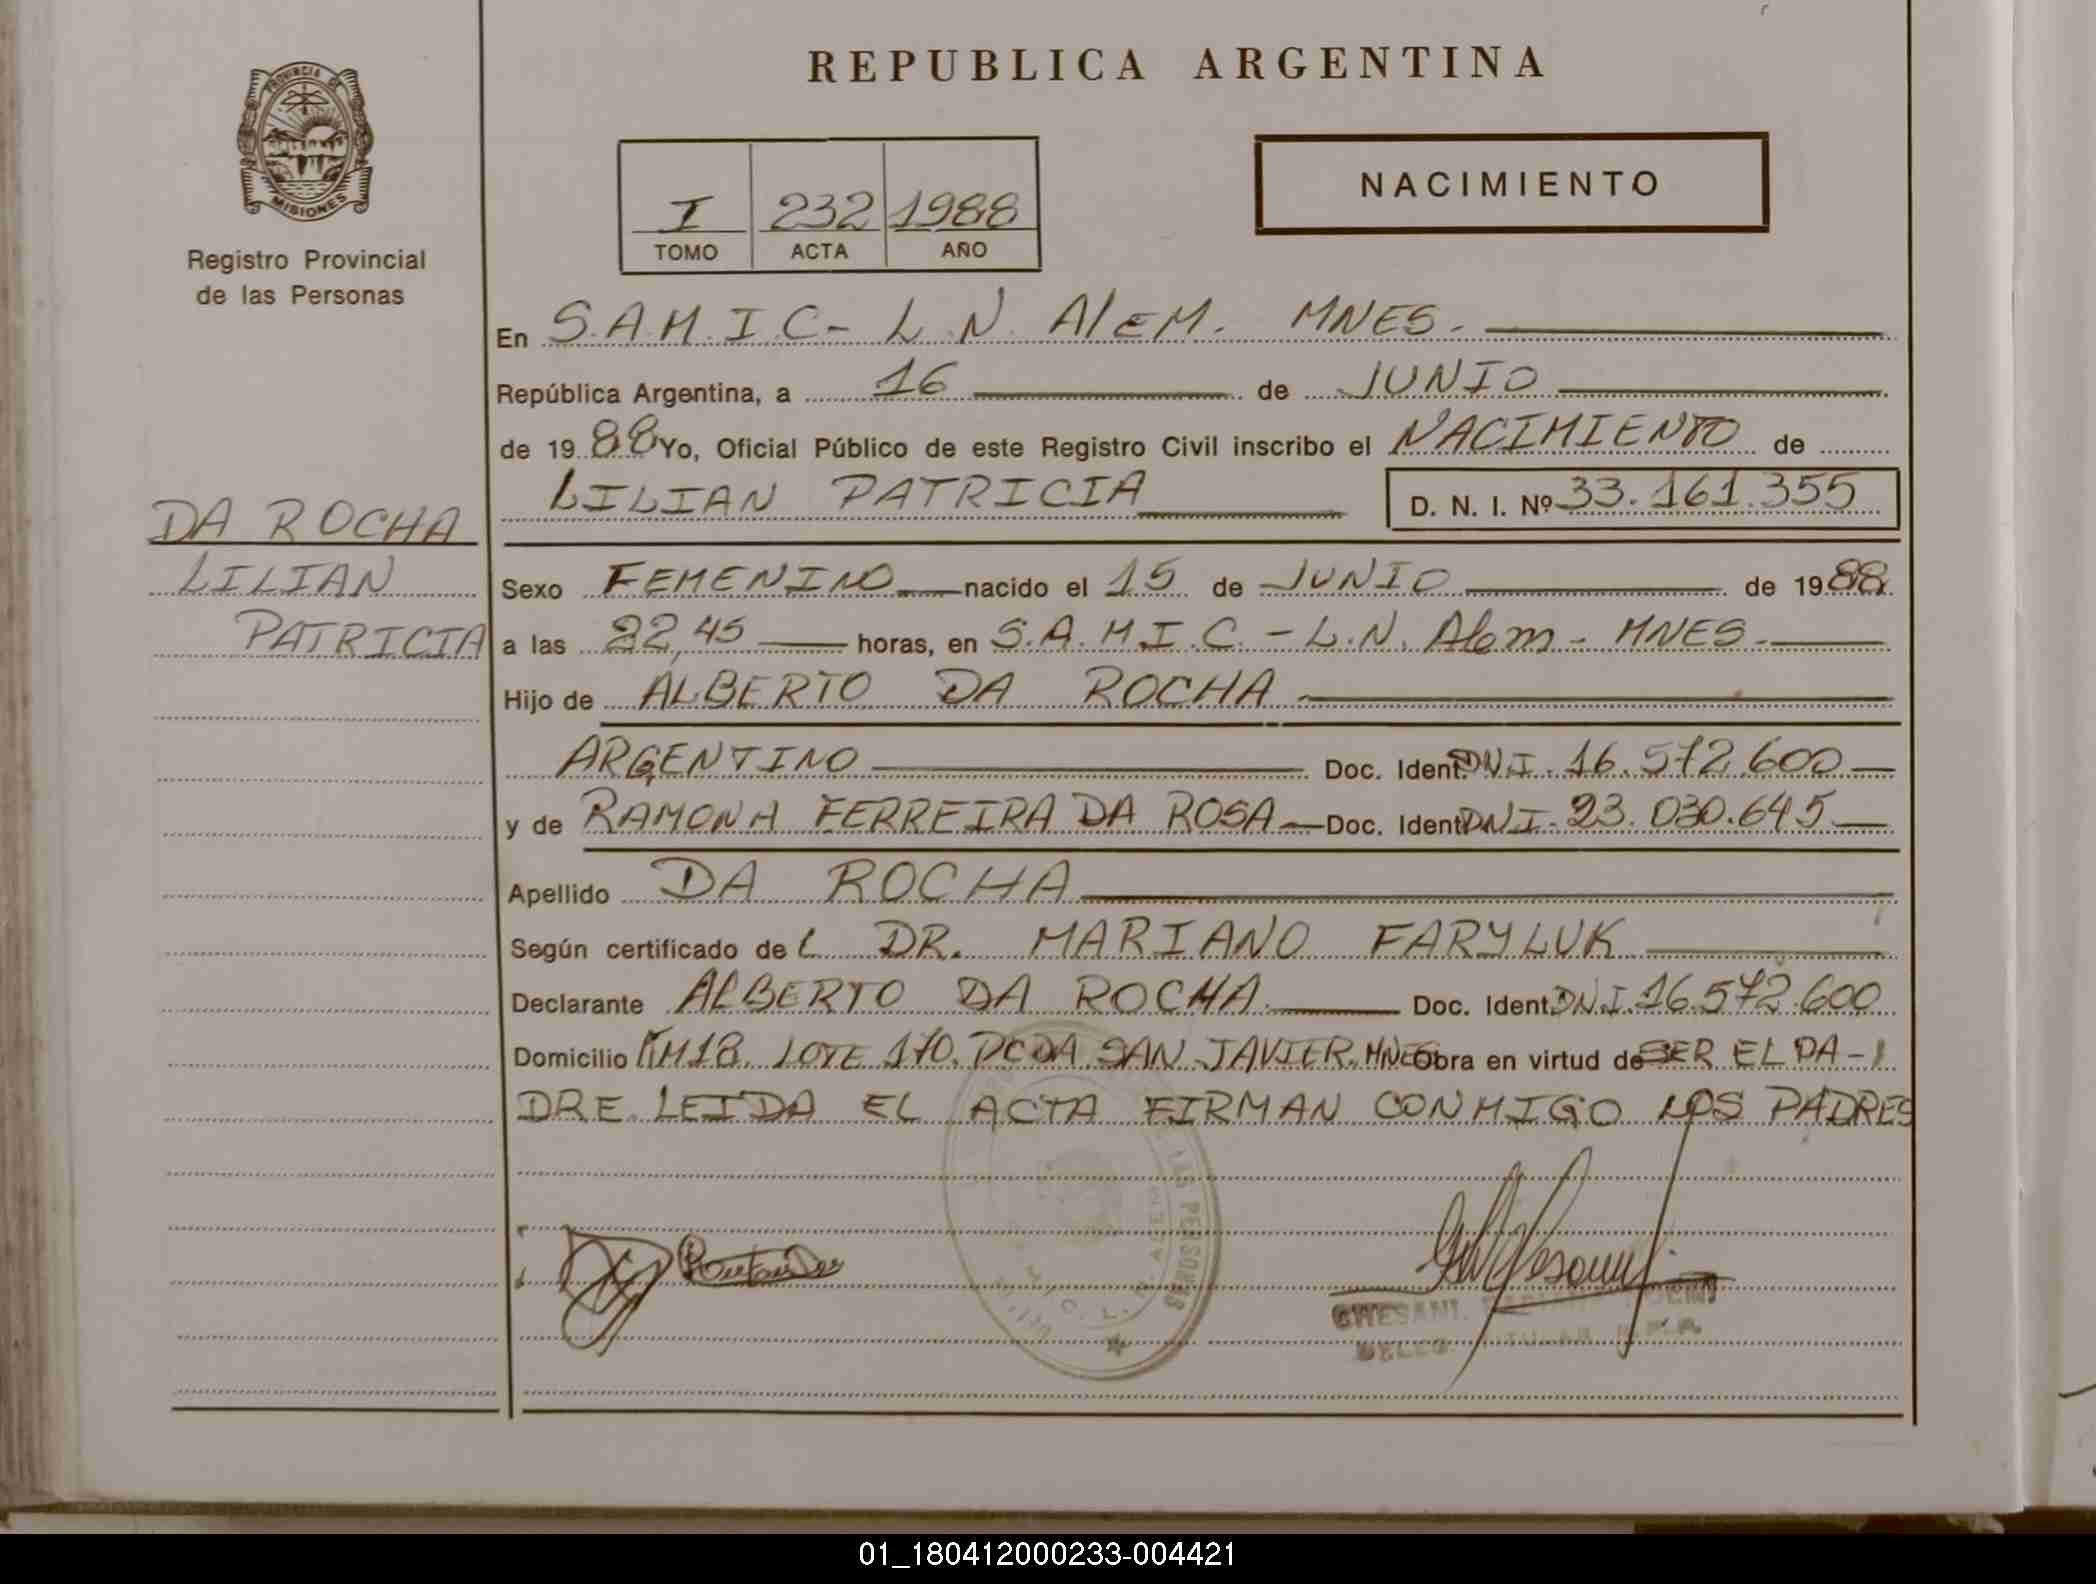 PROVINCIA DE
MISIONES
Registro Provincial
de las Personas
DA ROCHA
LILIAN
PATRICIA
REPUBLICA ARGENTINA
I 232 1988
TOMO ACTA AÑO
NACIMIENTO
En S.A.M.I.C- L.N. AlEM. MNES.
República Argentina, a 16 de JUNIO
de 1988 Yo, Oficial Público de este Registro Civil inscribo el NACIMIENTO de
LILIAN PATRICIA D. N. I. Nº 33.161.355
Sexo FEMENINO nacido el 15 de JUNIO de 1988
a las 22,45 horas, en S.A.M.I.C. - L.N. Alem - MNES.
Hijo de ALBERTO DA ROCHA
ARGENTINO Doc. Ident. DNI. 16.572.600
y de RAMONA FERREIRA DA ROSA Doc. Ident. DNI. 23.030.645
Apellido DA ROCHA
Según certificado de L DR. MARIANO FARYLUK
Declarante ALBERTO DA ROCHA Doc. Ident. DNI. 16.572.600
Domicilio KM18. LOTE 170. PCDA SAN JAVIER. MNES Obra en virtud de SER EL PA-
DRE LEIDA EL ACTA FIRMAN CONMIGO LOS PADRES
LAS PERSONAS
01_180412000233-004421